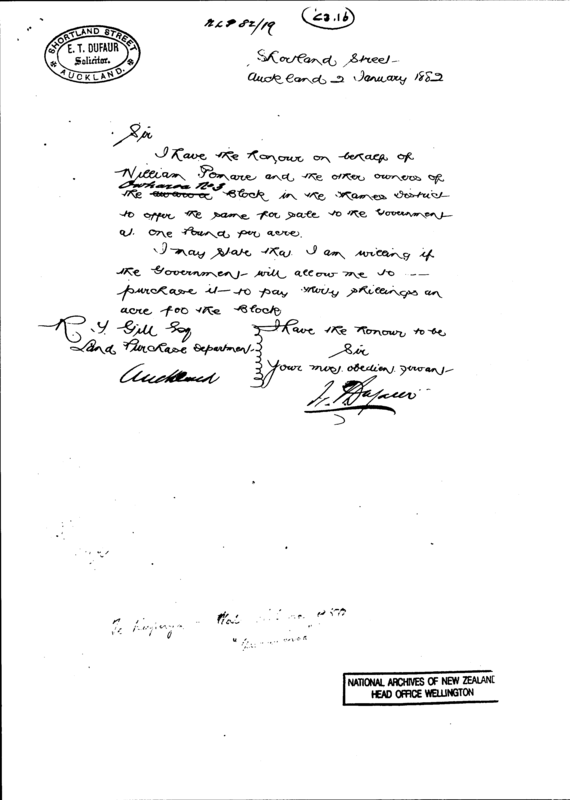 NLP 82/19
C3.16
SHORTLAND STREET
E. T. DUFAUR
Solicitor.
AUCKLAND.
Shortland Street
Auckland 2 January 1882
Sir
I have the honour on behalf of
William Pomare and the other owners of
No 3
the Block in the Thames District
to offer the same for sale to the Government
at one Pound per acre.
I may state that I am willing if
the Government will allow me to
purchase it to pay thirty shillings an
acre for the Block
I have the honour to be
Sir
Your most obedient servant
E. T. Dufaur
R. J. Gill Esq
Land Purchase Department
Auckland
NATIONAL ARCHIVES OF NEW ZEALAND
HEAD OFFICE WELLINGTON